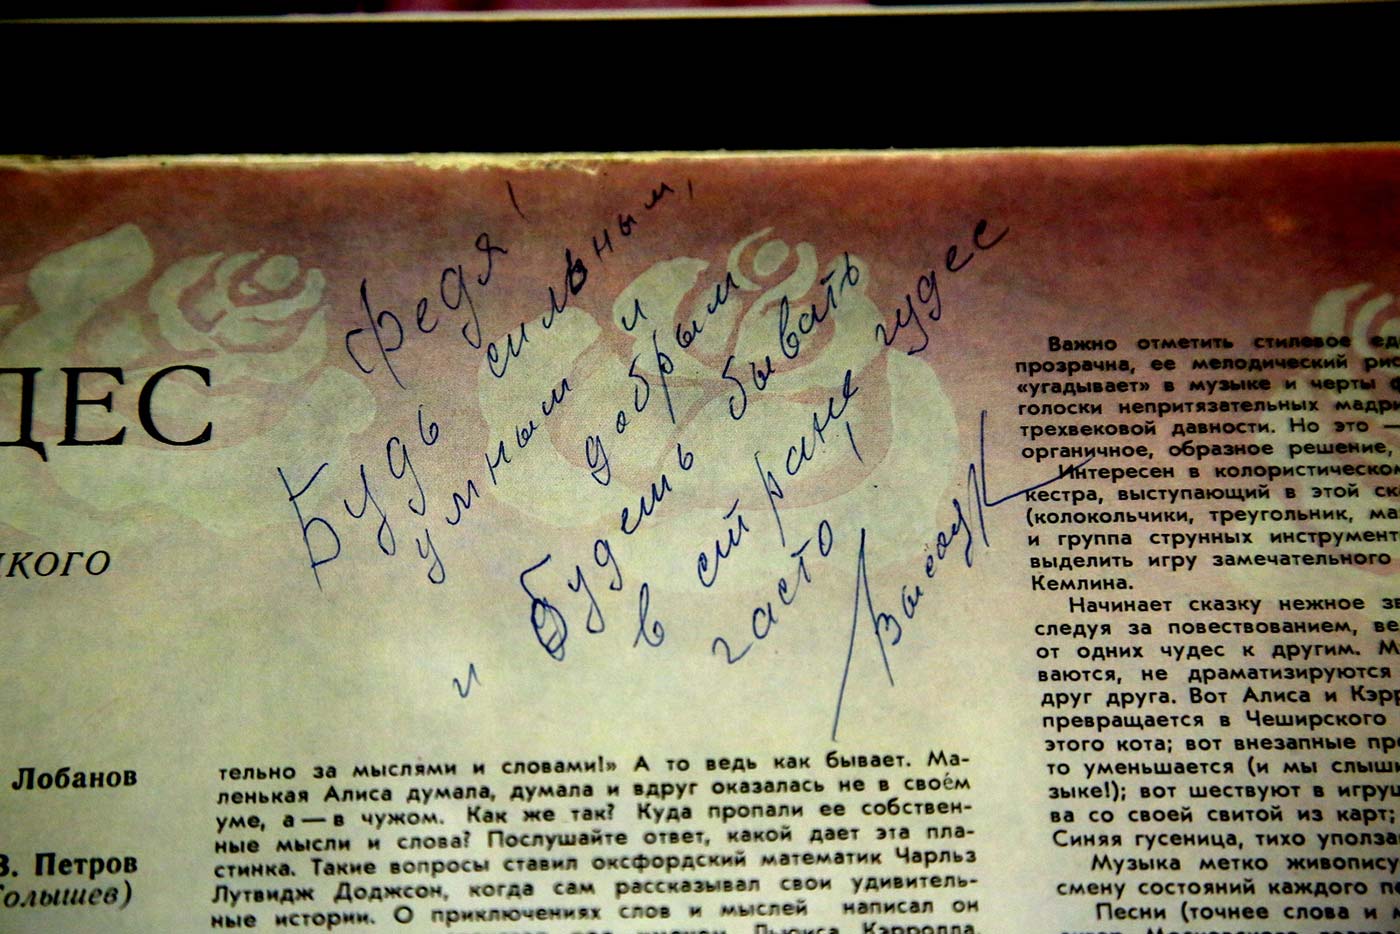 Федя!
Будь сильным,
умным и
добрым
и будешь бывать
в стране чудес
часто!
Высоцк
ДЕС
цкого
Лобанов
В. Петров
Голышев)
тельно за мыслями и словами!» А то ведь как бывает. Ма-
ленькая Алиса думала, думала и вдруг оказалась не в своём
уме, а — в чужом. Как же так? Куда пропали ее собствен-
ные мысли и слова? Послушайте ответ, какой дает эта пла-
стинка. Такие вопросы ставил оксфордский математик Чарльз
Лутвидж Доджсон, когда сам рассказывал свои удивитель-
ные истории. О приключениях слов и мыслей написал он
Льюиса Кэрролла.
Важно отметить стилевое ед
прозрачна, ее мелодический рис
«угадывает» в музыке и черты ф
голоски непритязательных мадри
трехвековой давности. Но это —
органичное, образное решение,
Интересен в колористическом
кестра, выступающий в этой ска
(колокольчики, треугольник, ма
и группа струнных инструмент
выделить игру замечательного
Кемлина.
Начинает сказку нежное зв
следуя за повествованием, ве
от одних чудес к другим. М
ваются, не драматизируются
друг друга. Вот Алиса и Кэрр
превращается в Чеширского
этого кота; вот внезапные пр
то уменьшается (и мы слыши
зыке!); вот шествуют в игруш
ва со своей свитой из карт;
Синяя гусеница, тихо уполза
Музыка метко живопису
смену состояний каждого пе
Песни (точнее слова и м